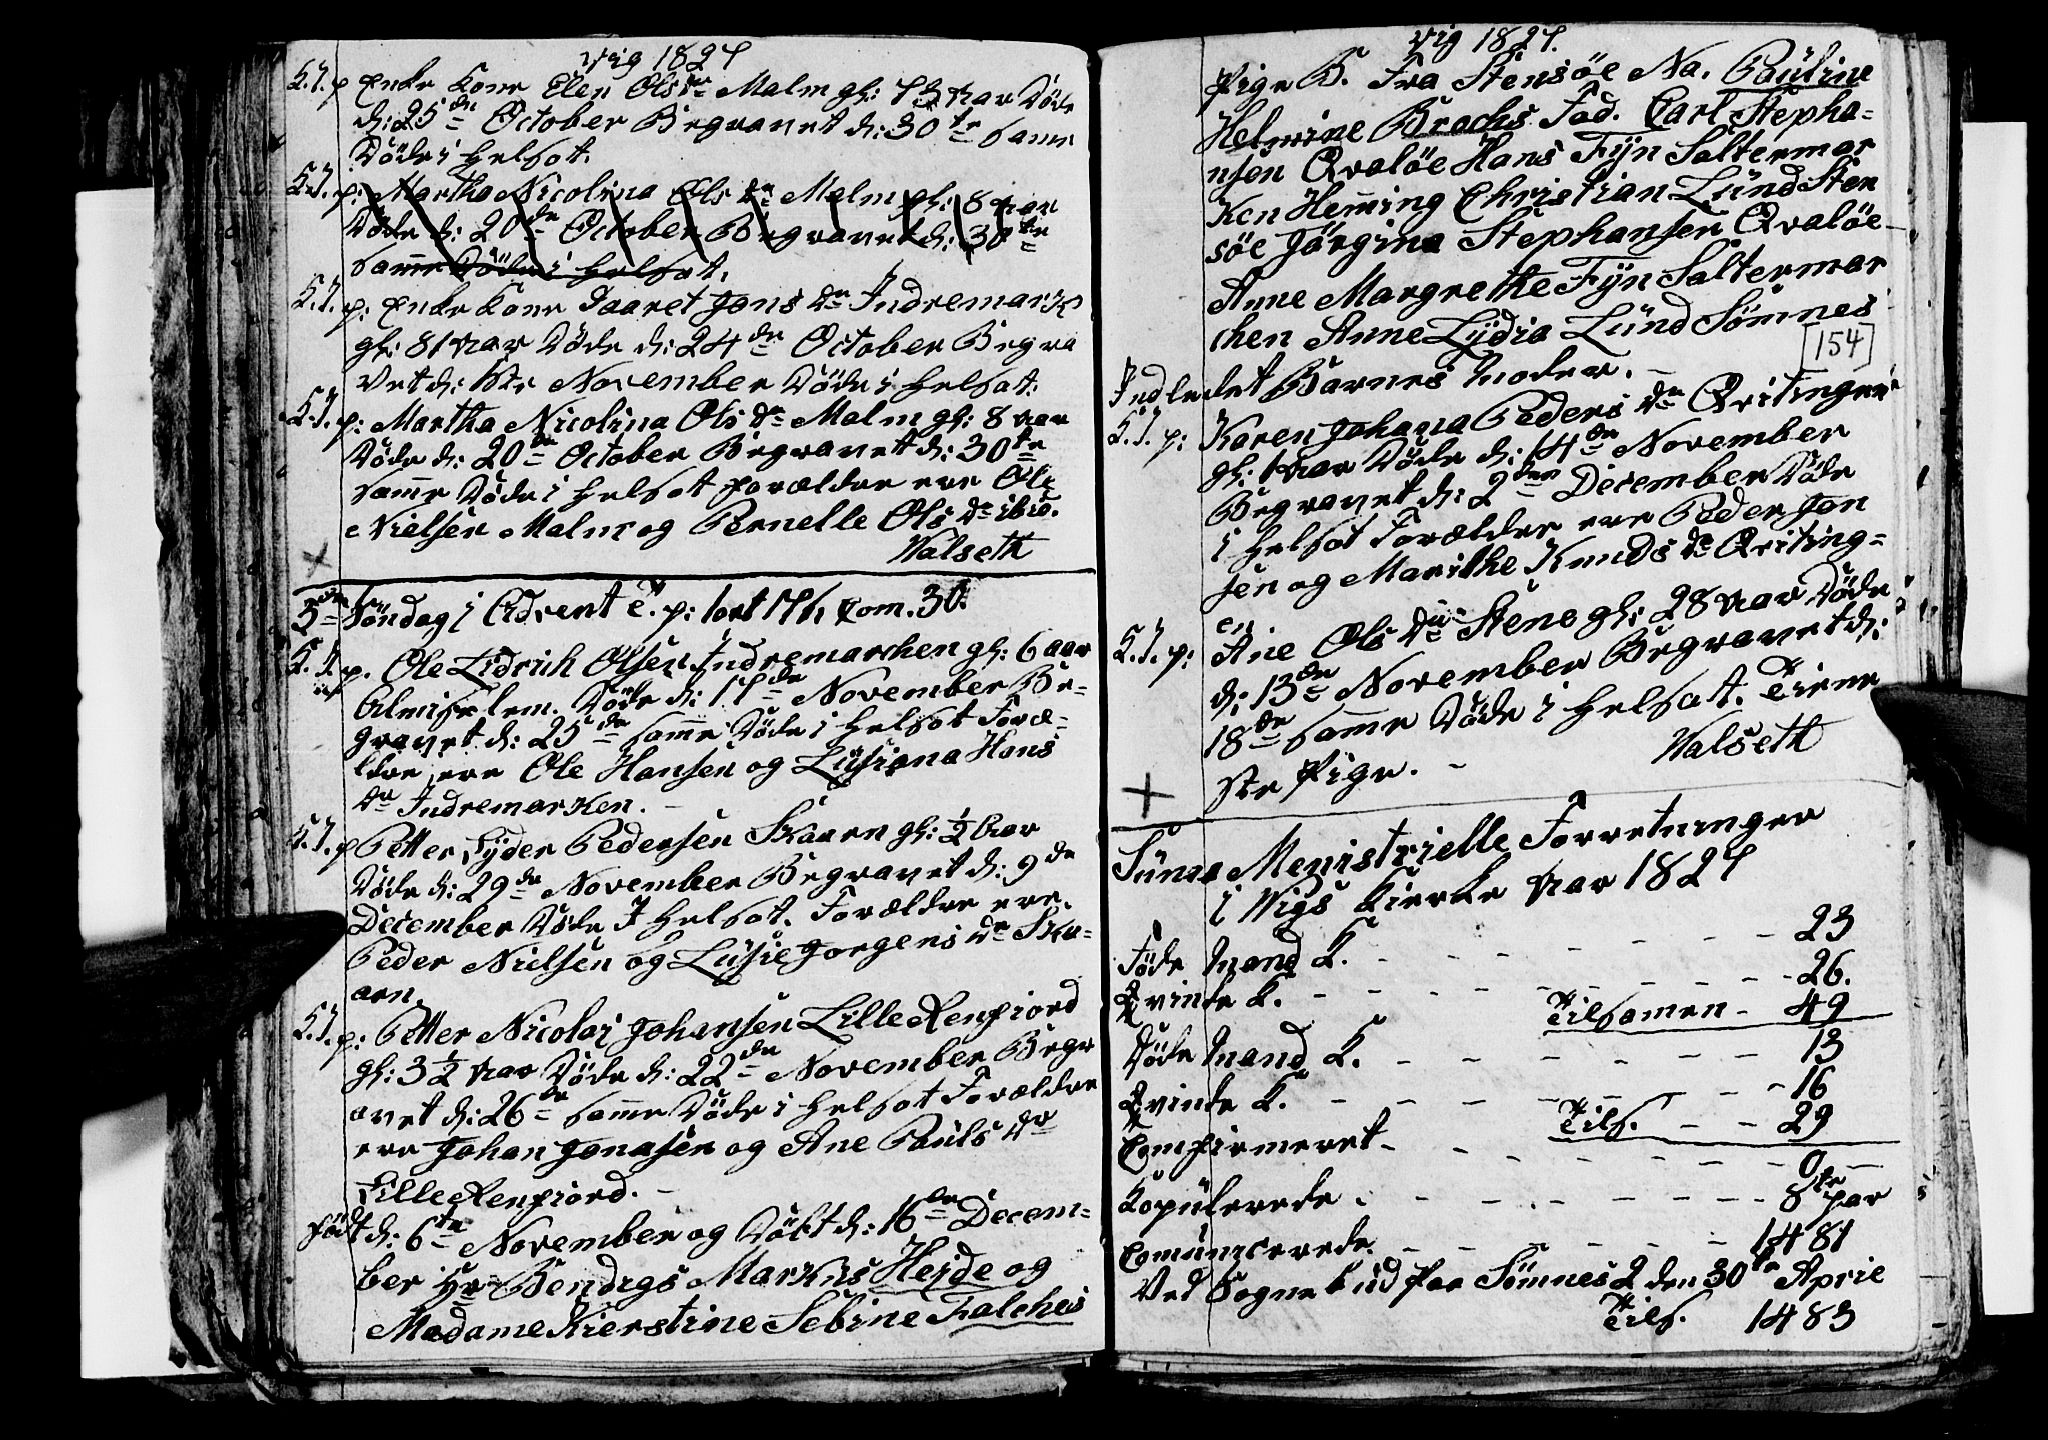 Vig 1827
K.J.p Enke Kone Elen Ols Dr Malm gl: 73 Aar Døde
d: 25de October Begravet d: 30te Samme
Døde i Helsot.
K.J.p: Martha Nicolina Ols Dr Malm gl: 8 Aar
Døde d: 20de October Begravet d: 30te
Samme Døde i Helsot.
K.J.p: Enke Kone Jons Dr Indremark
gl: 81 Aar Døde d: 24de October Begra
vet d: November Døde i Helsot.
K.J.p: Martha Nicolina Ols Dr Malm gl: 8 Aar
Døde d: 20de October Begravet d: 30te
Samme Døde i Helsot Forældre ere Ole
Nielsen Malm og Pernelle Ols Dr ibid.
Walseth
3die Søndag i Advent Com. 30.
K.J.p. Ole Olsen Indremarchen gl: 6 Aar
Døde d: 17de November Be-
gravet d: 25de Samme Døde i Helsot Foræ-
ldre ere Ole Hansen og Lusiana Hans
Dr Indremarken.
K.J.p Petter Lyder Pedersen Skaaren gl: ½ Aar
Døde d: 29de November Begravet d: 9de
December Døde I Helsot. Forældre ere.
Peder Nielsen og Lusie Jorgens Dr Ska-
aren.
K.J.p: Petter Nicolai Johansen Lille Renfiord
gl: 3½ Aar Døde d: 22de November Begr
avet d: 26de Samme Døde i Helsot Forældre
ere Johan Jonasen og Ane Pauls Dr
Lille Renfiord.
Født d: 6te November og Døbt d: 16de Decem-
ber Hr Bendigs Markus Heide og
Madame Kierstine Sebine Falches
Vig 1827.
Pige B. Fra Stensøe Na. Pauline
Helmine Brochs Fad. Carl Stepha-
nsen Qvaløe Hans Fyn Saltermar
ken Hemming Christian Lund Sten
søe Jörgina Stephansen Qvaløe
Anne Margrethe Fyn Saltermar
chen Anne Lydia Lund Sömnes
154
Indledet Barnes Moder.
K.J.p: Karen Johana Peders Dr Qvitingen
gl: 1 Aar Døde d: 14de November
Begravet d: 2den December Døde
i Helsot Forældre ere Peder Jon
sen og Marithe Knuds Dr Qviting-
en
K.J.p: Ane Ols Dr Stene gl: 28 Aar Døde
d: 13de November Begravet d:
18de Samme Døde i Helsot. Tiene
ste Pige.
Walseth
Suma Menistrielle Forretninger
i Wigs Kierke Aar 1827
Føde Mand K. 23
Qvinde K. 26.
Tilsamen 49
Døde Mand K. 13
Qvinde K. 16
Tils. 29
Confirmeret 0
Kopulerede 8te par
Comunicerede 1481
Ved Sognebud paa Sömnes 2 den 30te Aprie
Tils. 1483